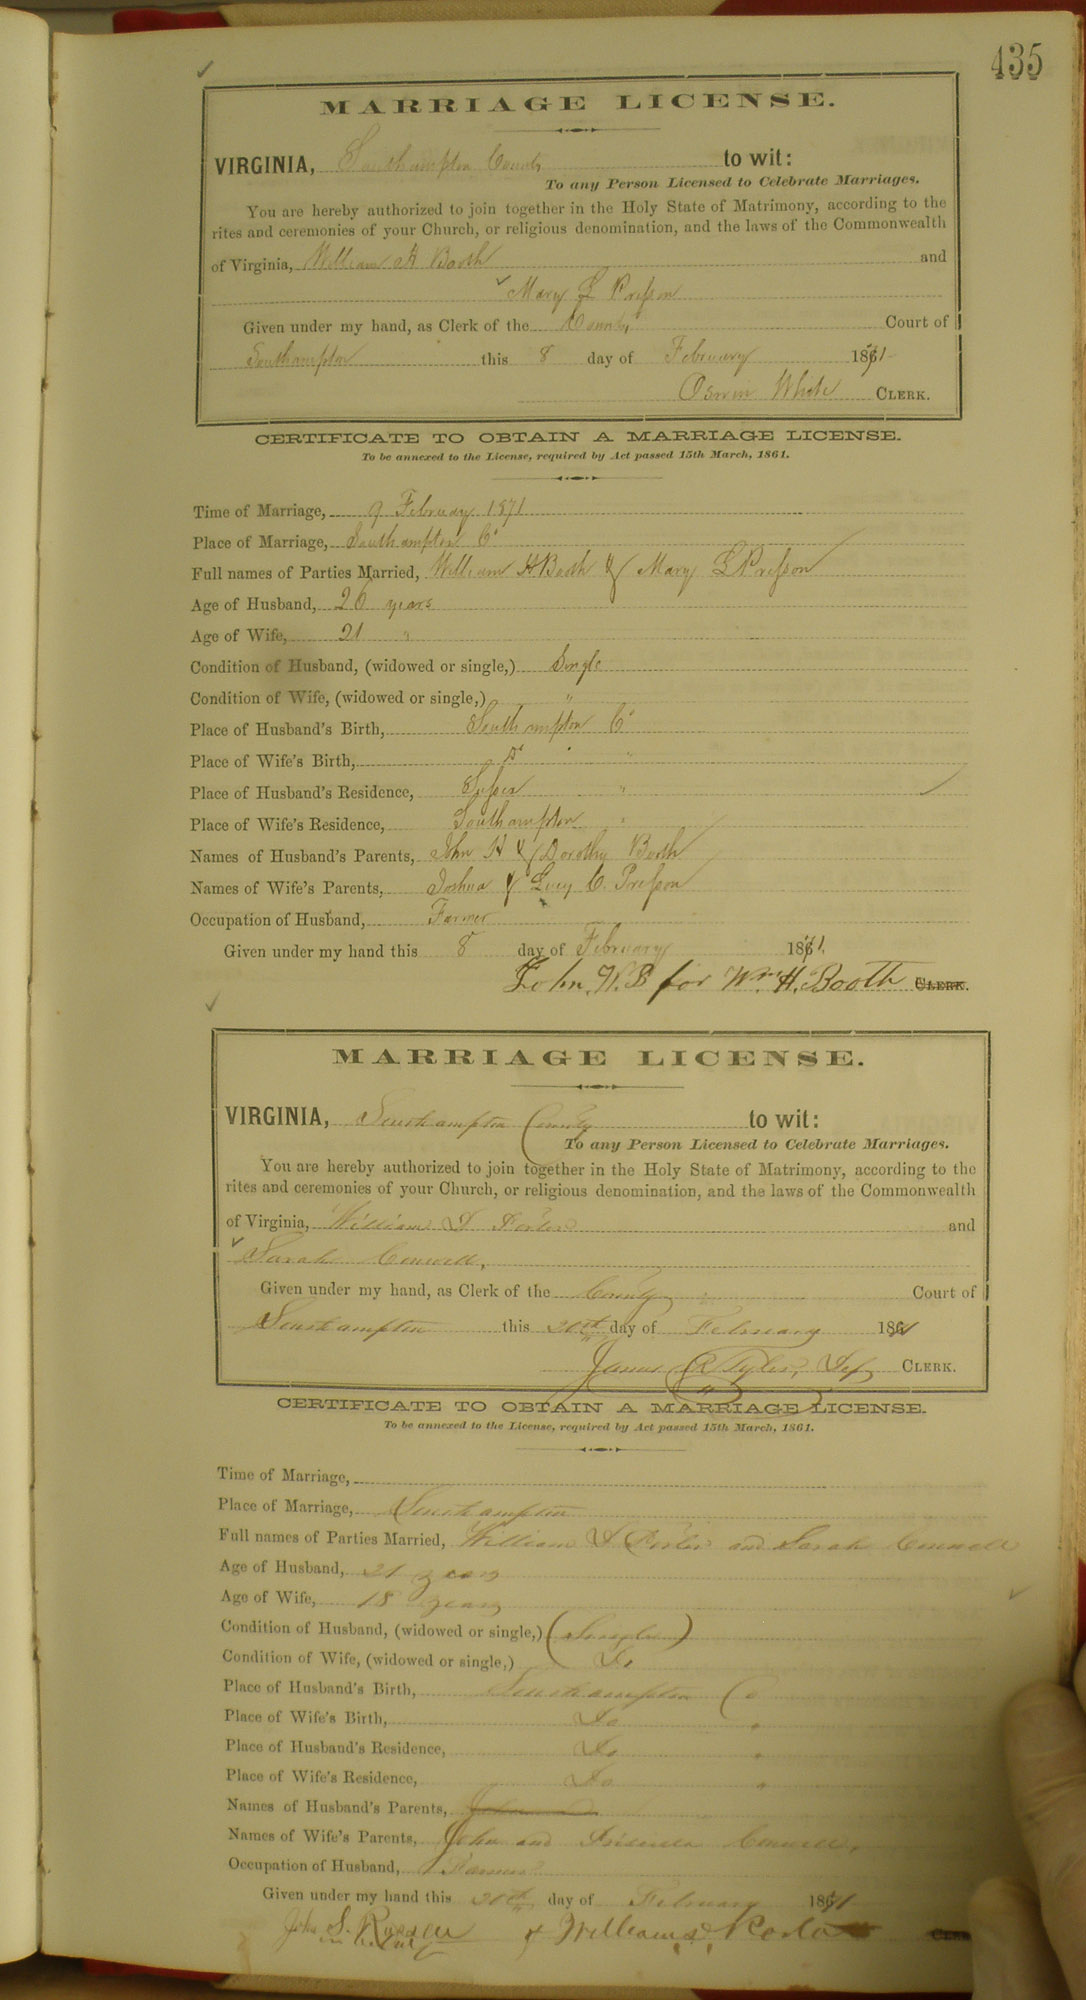 435
MARRIAGE LICENSE.
VIRGINIA, Southampton County to wit:
To any Person Licensed to Celebrate Marriages.
You are hereby authorized to join together in the Holy State of Matrimony, according to the
rites and ceremonies of your Church, or religious denomination, and the laws of the Commonwealth
of Virginia, William H Booth and
Mary L Presson
Given under my hand, as Clerk of the County Court of
Southampton this 8 day of February 1871
Oswin White CLERK.
CERTIFICATE TO OBTAIN A MARRIAGE LICENSE.
To be annexed to the License, required by Act passed 15th March, 1861.
Time of Marriage, 9 February 1871
Place of Marriage, Southampton Co
Full names of Parties Married, William H Booth & Mary L Presson
Age of Husband, 26 years
Age of Wife, 21 "
Condition of Husband, (widowed or single,) Single
Condition of Wife, (widowed or single,) "
Place of Husband's Birth, Southampton Co
Place of Wife's Birth, Do "
Place of Husband's Residence, Sussex "
Place of Wife's Residence, Southampton "
Names of Husband's Parents, John H & Dorothy Booth
Names of Wife's Parents, Joshua & Lucy C. Presson
Occupation of Husband, Farmer
Given under my hand this 8 day of February 1871
John. W. B for Wm H. Booth CLERK.
MARRIAGE LICENSE.
VIRGINIA, Southampton County to wit:
To any Person Licensed to Celebrate Marriages.
You are hereby authorized to join together in the Holy State of Matrimony, according to the
rites and ceremonies of your Church, or religious denomination, and the laws of the Commonwealth
of Virginia, William and
Sarah
Given under my hand, as Clerk of the County Court of
Southampton this 20th day of February 1871
James R Tyler, Dep CLERK.
CERTIFICATE TO OBTAIN A MARRIAGE LICENSE.
To be annexed to the License, required by Act passed 15th March, 1861.
Time of Marriage,
Place of Marriage, Southampton
Full names of Parties Married, William and Sarah
Age of Husband, 21 years
Age of Wife, 18 years
Condition of Husband, (widowed or single,) (Single)
Condition of Wife, (widowed or single,) Do
Place of Husband's Birth, Southampton Co
Place of Wife's Birth, Do "
Place of Husband's Residence, Do "
Place of Wife's Residence, Do "
Names of Husband's Parents,
Names of Wife's Parents, John and Priscilla
Occupation of Husband, Farmer
Given under my hand this 20th day of February 1871
John S. & William CLERK